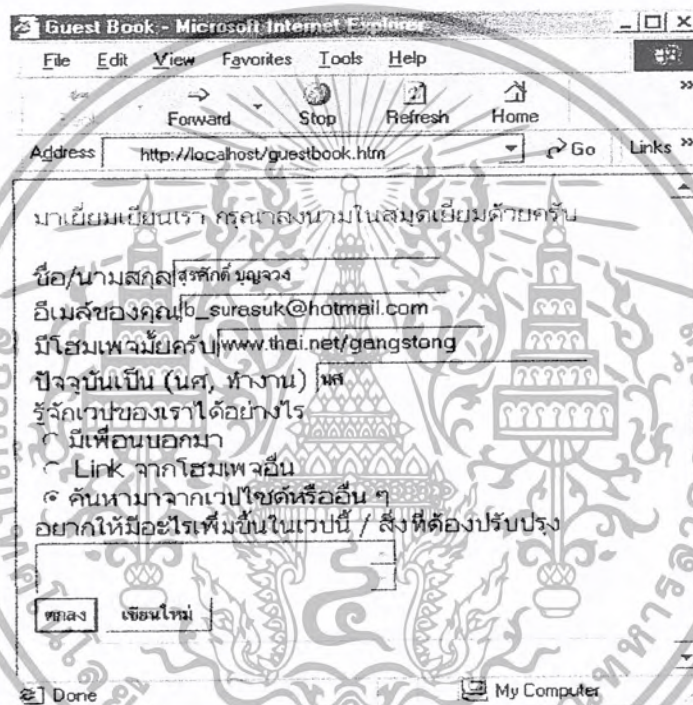 Guest Book - Microsoft Internet Explorer
File Edit View Favorites Tools Help
Forward Stop Refresh Home »
Address http://localhost/guestbook.htm Go Links »
มาเยี่ยมเยียนเรา กรุณาลงนามในสมุดเยี่ยมด้วยครับ
ชื่อ/นามสกุล สุรศักดิ์ บุญจวง
อีเมล์ของคุณ b_surasuk@hotmail.com
มีโฮมเพจมั้ยครับ www.thai.net/gangstong
ปัจจุบันเป็น (นศ, ทำงาน) นศ
รู้จักเวปของเราได้อย่างไร
มีเพื่อนบอกมา
Link จากโฮมเพจอื่น
ค้นหามาจากเวปไซด์หรืออื่น ๆ
อยากให้มีอะไรเพิ่มขึ้นในเวปนี้ / สิ่งที่ต้องปรับปรุง
ตกลง เขียนใหม่
Done My Computer